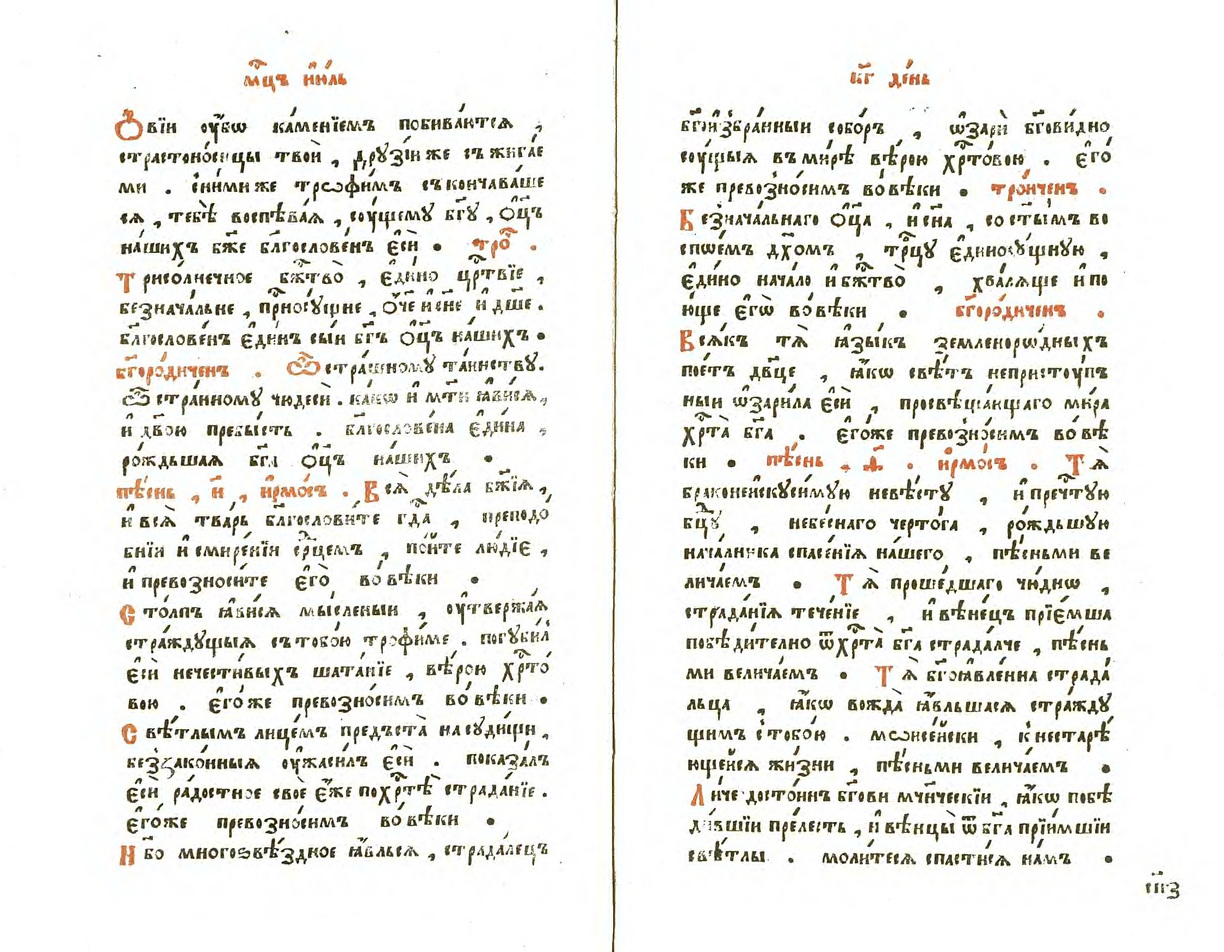 мⷭ҇цъ і҆ю́ль
Ѻ҆́вїи ᲂу҆́бѡ ка́менїемъ побива́ются ,
страстоно́сцы твоѝ , друзі́и же съжига́е
ми . с̾ни́ми же трѡѳи́мъ съконча́ваше
ся , тебѐ воспѣва́я , су́щему бг҃у , ѻ҆ц҃ъ
на́шихъ бж҃е блгⷭ҇ове́нъ є҆сѝ . тро́ⷱ .
Трисо́лнечное бжⷭ҇тво̀ , є҆ди́но црⷭ҇твїе ,
безнача́льне , прⷭ҇носу́щне , ѻ҆́ч҃е и҆ сн҃е и҆ дш҃е .
блгослове́нъ є҆ди́нъ сы́и бг҃ъ ѻ҆ц҃ъ на́шихъ .
бг҃оро́диченъ . Ѽ стра́шному та́инству .
Ѽ стра́нному чюдесѝ . ка́кѡ и҆ мт҃и ꙗ҆ви́ся ,
и҆ дв҃ою пребы́сть . благослове́на є҆ди́на ,
ро́ждьшая бг҃а ѻ҆ц҃ъ на́шихъ .
пѣ́снь , и҃ , і҆рмо́съ . Вся̑ дѣла̀ бж҃їя ,
и҆ вся̀ тва́рь благослови́те гдⷭ҇а , преподо́
бнїи и҆ смире́нїи срⷣцемъ , по́ите лю́дїе ,
и҆ превозноси́те є҆го̀ во́ вѣки .
Сто́лпъ ꙗ҆ви́ся мы́сленыи , ᲂу҆твержа́я
стра́ждущыя съ тобо́ю трофи́ме . погуби́лъ
є҆сѝ нечести́выхъ шата́нїе , вѣ́рою хрⷭ҇то́
вою . є҆го́же превозно́симъ во́ вѣки .
Свѣ́тлымъ лице́мъ предъста̀ на суди́щи ,
беззако́нныя ᲂу҆жаси́лъ є҆сѝ . показа́лъ
є҆сѝ ра́достное своѐ є҆́же по хрⷭ҇тѣ̀ страда́нїе .
є҆го́же превозно́симъ во́ вѣки .
Н҆́бо многозвѣ́здное ꙗ҆вльься , страда́лецъ
к҃г де́нь
бг҃ои҆збра́нныи собо́ръ , ѡ҆зарѝ бг҃ови́дно
су́щыя въ ми́рѣ вѣ́рою хрⷭ҇то́вою . є҆го́
же превозно́симъ во́ вѣки . тро́иченъ .
Безнача́льнаго ѻ҆ц҃а , и҆ сн҃а , со ст҃ы́мъ во
спѡе́мъ дх҃омъ , трⷪ҇цу є҆диносу́щную ,
є҆ди́но нача́ло и҆ бжⷭ҇тво̀ , хваля́ще и҆ по
ю́ще є҆гѡ̀ во́ вѣки . бг҃оро́диченъ .
Вся́къ тя̀ ꙗ҆зы́къ земленоро́дныхъ
пое́тъ дв҃це , ꙗ҆́кѡ свѣ́тъ непристу́п
ныи ѡ҆зари́ла є҆сѝ , просвѣща́ющаго ми́ра
хрⷭ҇та̀ бг҃а . є҆го́же превозно́симъ во́ вѣ
ки . пѣ́снь , ѳ҃ . і҆рмо́съ . Тя̀
браконеиску́симую невѣ́сту , и҆ пречⷭ҇тую
бц҃у , небе́снаго черто́га , ро́ждьшую
нача́лника спасе́нїя на́шего , пѣ́сньми ве
лича́емъ . Тя̀ проше́дшаго чи́днѡ ,
страда́нїя тече́нїе , и҆ вѣне́цъ прїе́мша
побѣди́телно ѿ хрⷭ҇та̀ бг҃а страда́лче , пѣ́снь
ми велича́емъ . Тя̀ бг҃оꙗвле́нна страда́
льца , ꙗ҆́кѡ вождя̀ ꙗ҆́вльшася стра́жду
щимъ с̾ тобо́ю . мѡисе́йски , к̾ нестарѣ́
ющеися жи́зни , пѣ́сньми велича́емъ .
Личе досто́инъ бг҃ови мч҃нческїи , ꙗ҆́кѡ побѣ
ди́вшїи пре́лесть , и҆ вѣнцы̀ ѿ бг҃а прїи́мшїи
свѣ́тлы . моли́теся спасти́ся на́мъ .
сп҃з